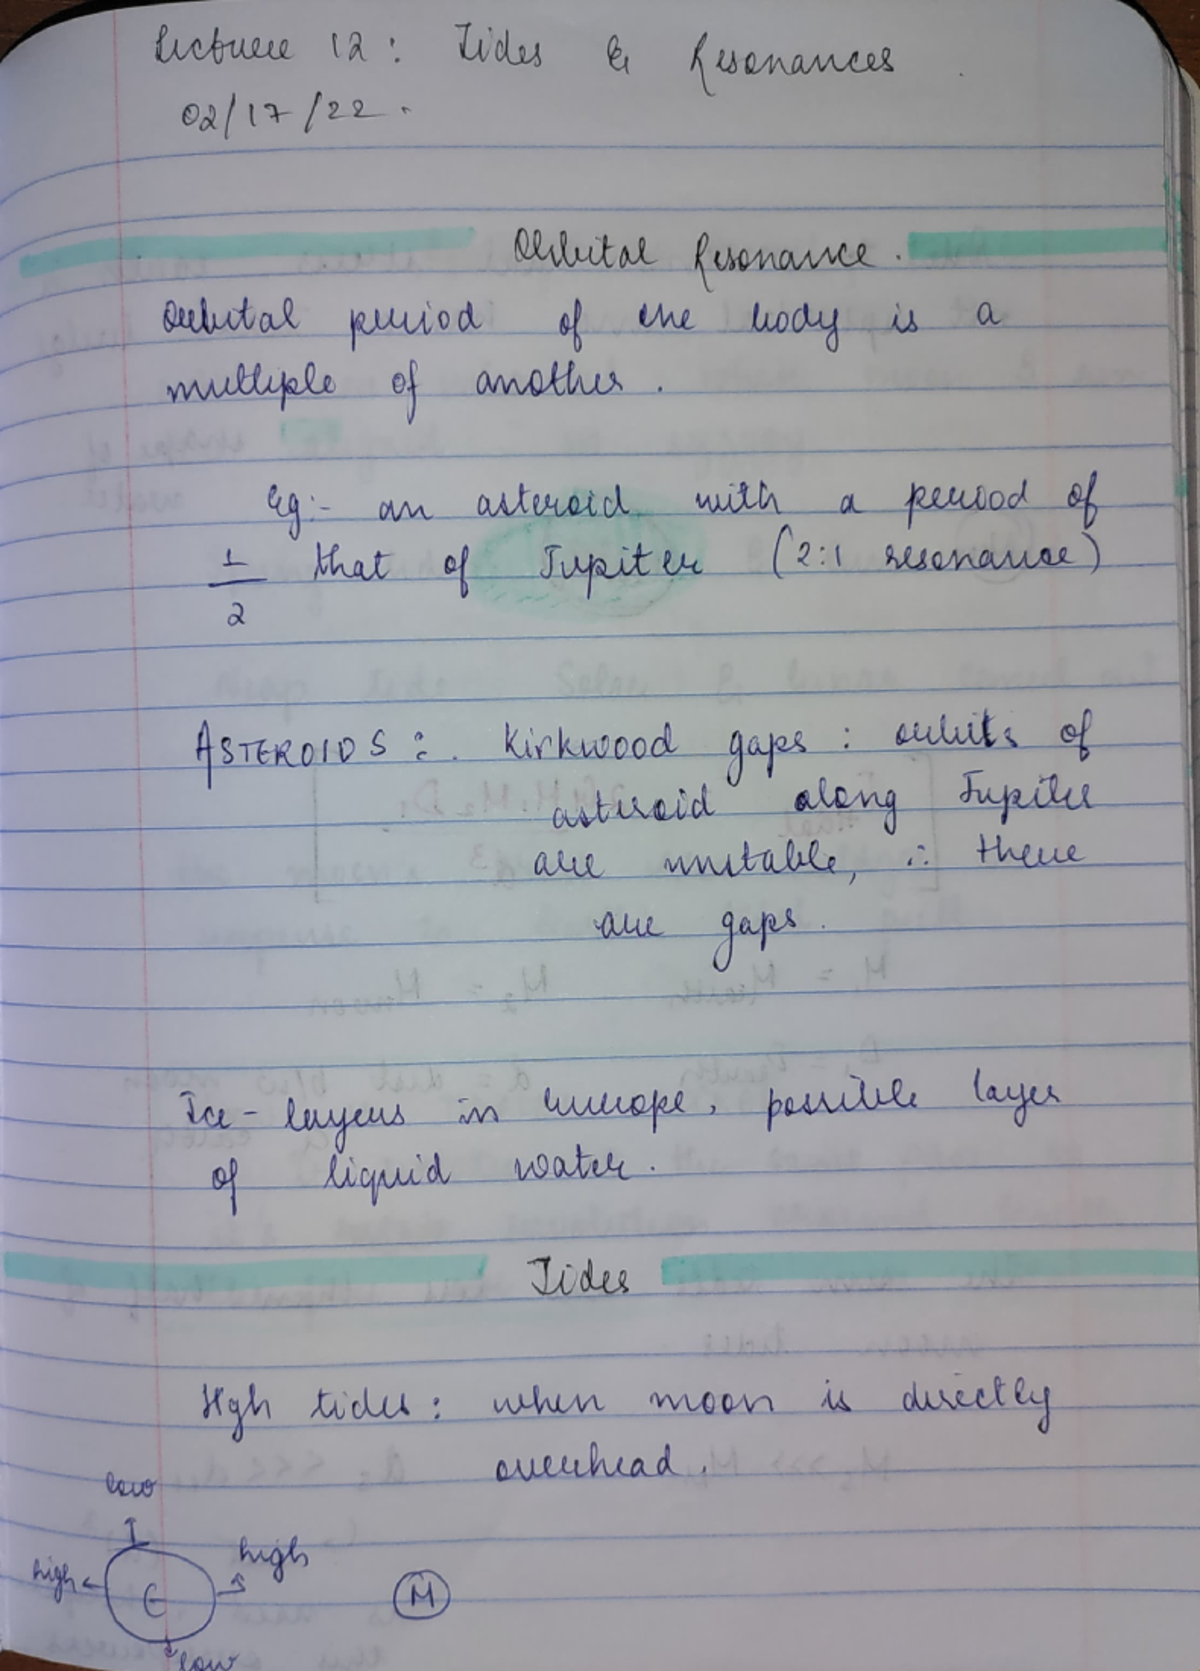 Lecture 12: Tides & Resonances
02/17/22.
Orbital Resonance.
Orbital period of one body is a
multiple of another.
Eg:- an asteroid with a period of
1/2 that of Jupiter (2:1 resonance)
ASTEROIDS: Kirkwood gaps: orbits of
asteroid along Jupiter
are unstable, ∴ there
are gaps.
Ice-layers in Europe, possible layer
of liquid water.
Tides
High tides: when moon is directly
overhead.
low
high
high
E
M
low